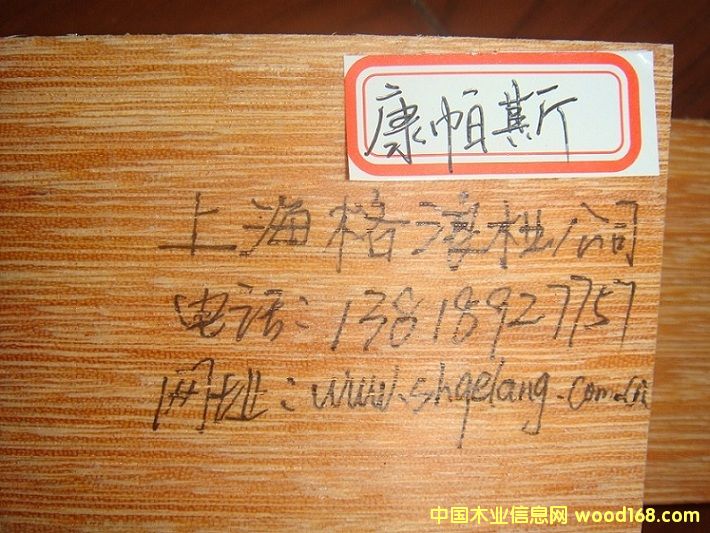 康帕斯
上海格木业公司
电话:13818927757
网址:www.shgelang.com.cn
中国木业信息网 wood168.com